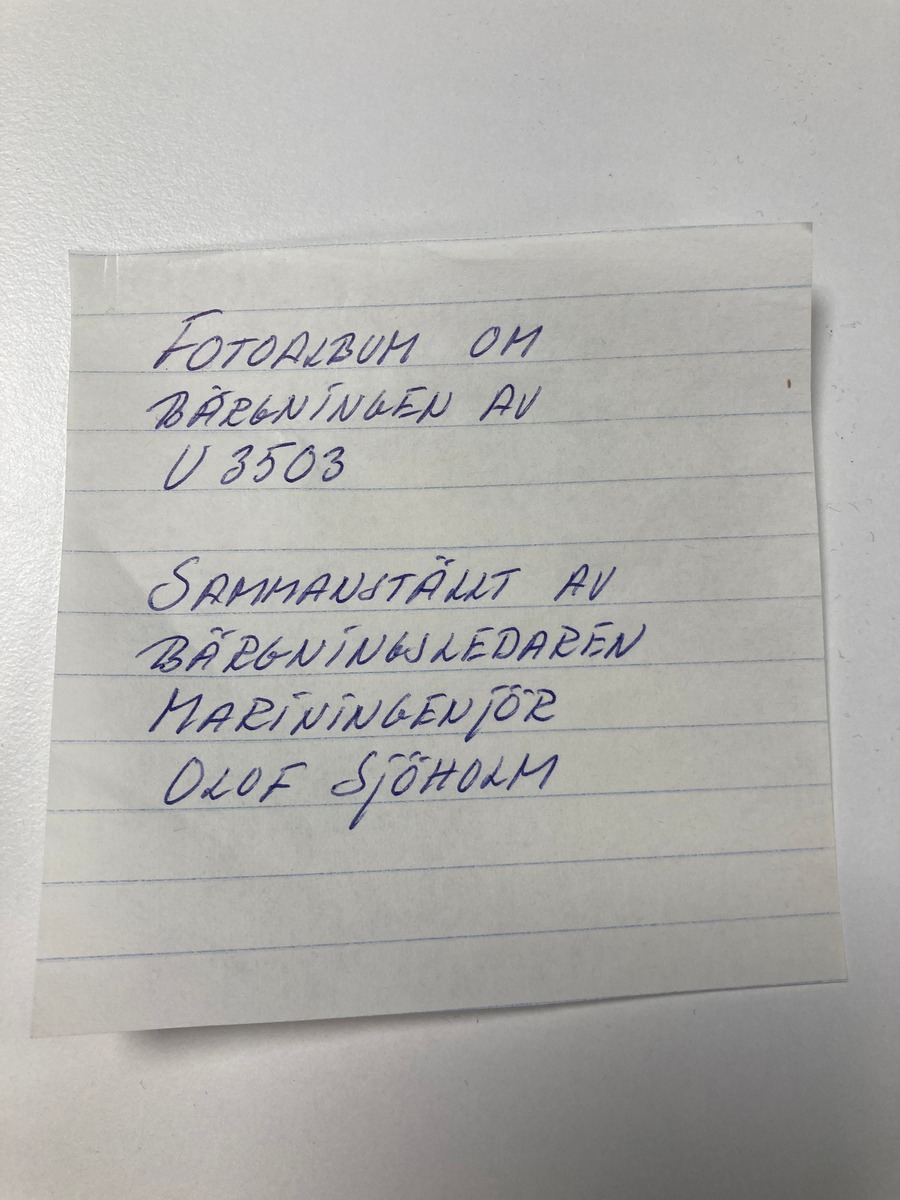 FOTOALBUM OM
BÄRGNINGEN AV
U 3503
SAMMANSTÄLLT AV
BÄRGNINGSLEDAREN
MARININGENJÖR
OLOF SJÖHOLM